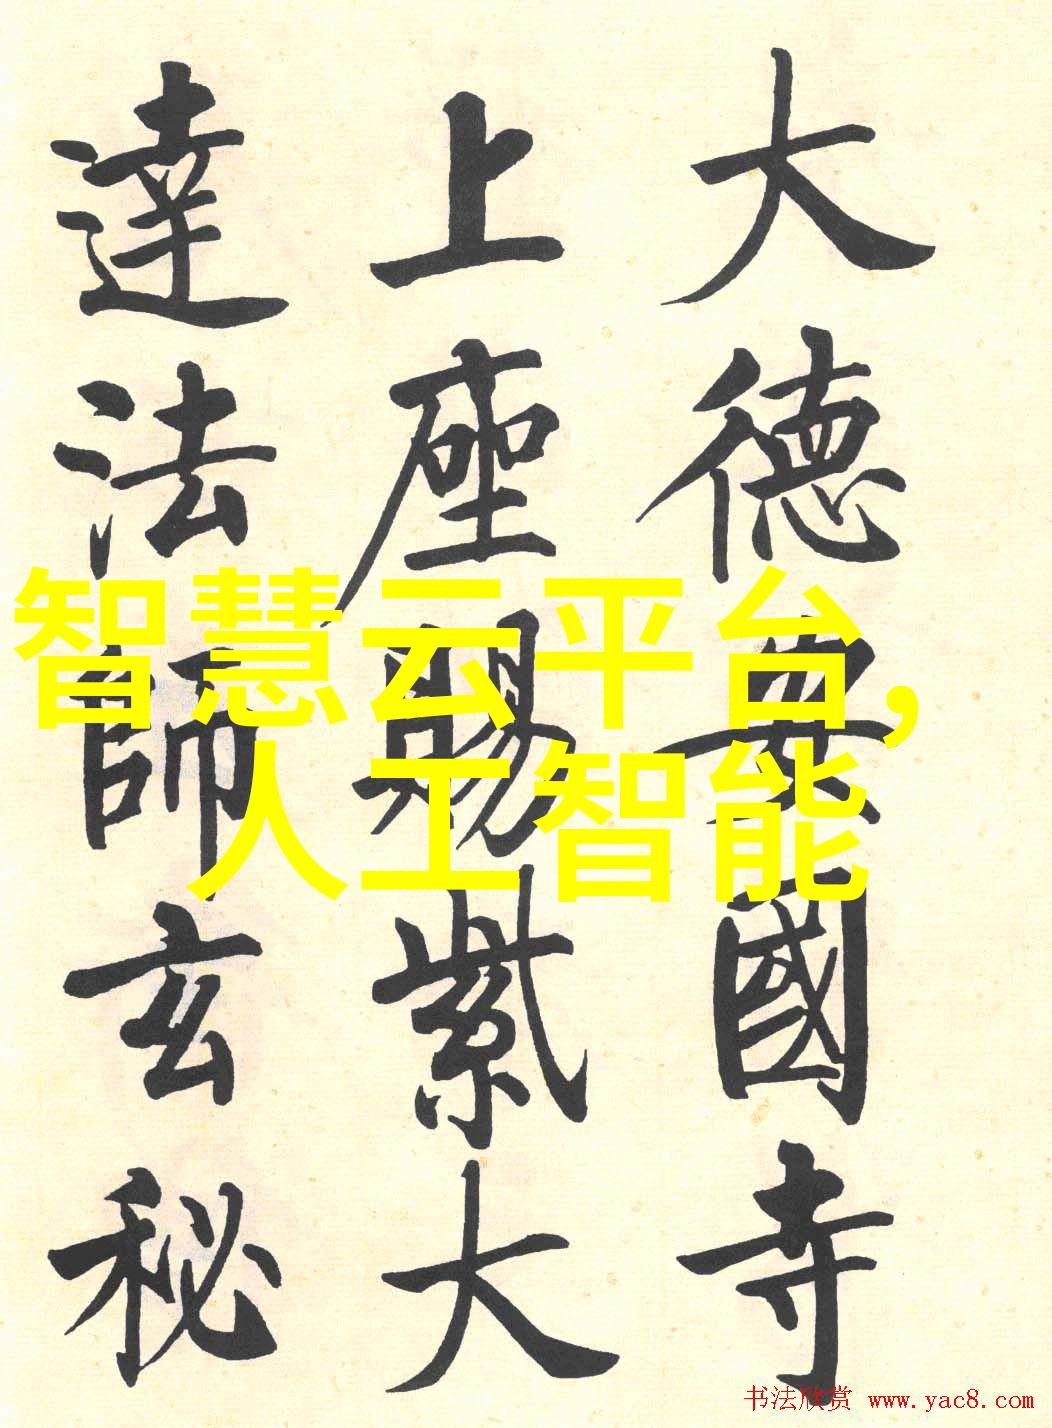 大德安國寺
上座賜紫大
達法師玄秘
智慧云平台,
人工智能
书法欣赏 www.yac8.com